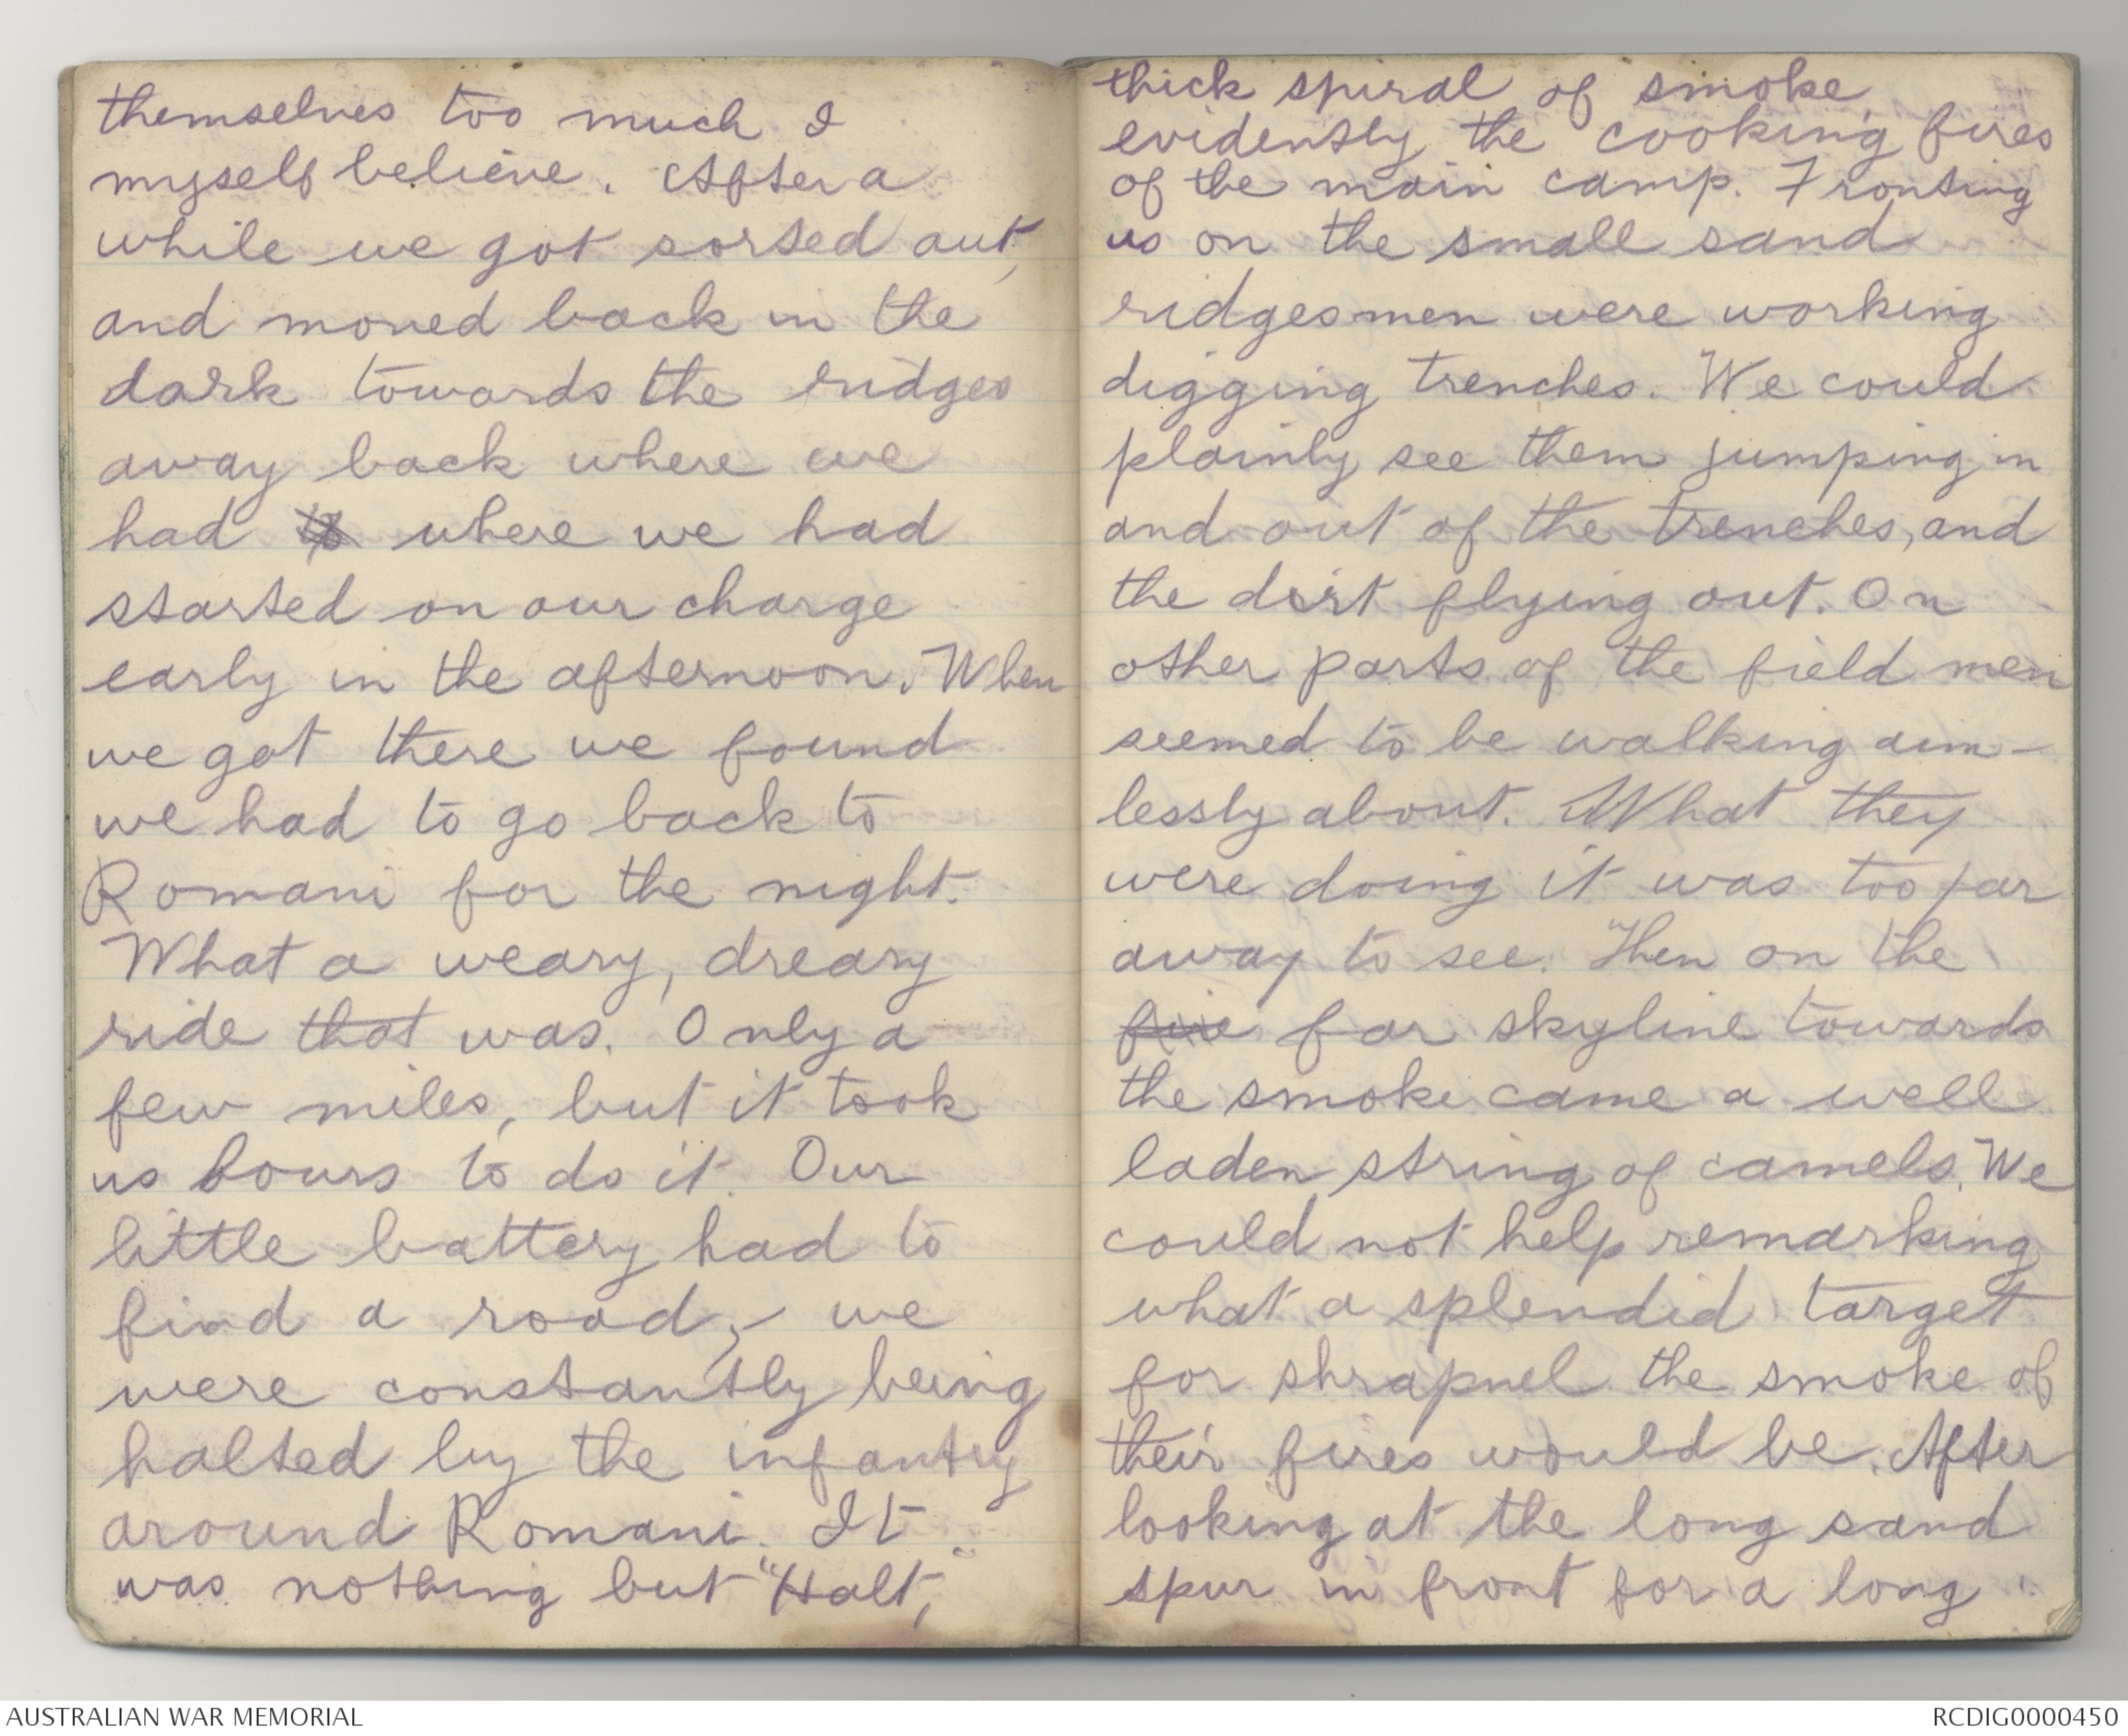 themselves too much I
myself believe. After a
while we got sorted out,
and moved back in the
dark towards the ridges
away back where we
had where we had
started on our charge
early in the afternoon. When
we got there we found
we had to go back to
Romani for the night.
What a weary, dreary
ride that was. Only a
few miles, but it took
us hours to do it. Our
little battery had to
find a road, - we
were constantly being
halted by the infantry
around Romani. It
was nothing but "Halt,"
thick spiral of smoke
evidently the cooking fires
of the main camp. Fronting
us on the small sand
ridges men were working
digging trenches. We could
plainly see them jumping in
and out of the trenches, and
the dirt flying out. On
other parts of the field men
seemed to be walking aim-
lessly about. What they
were doing it was too far
away to see. Then on the
far skyline towards
the smoke came a well
laden string of camels. We
could not help remarking
what a splendid target
for shrapnel the smoke of
their fires would be. After
looking at the long sand
spur in front for a long
AUSTRALIAN WAR MEMORIAL
RCDIG0000450